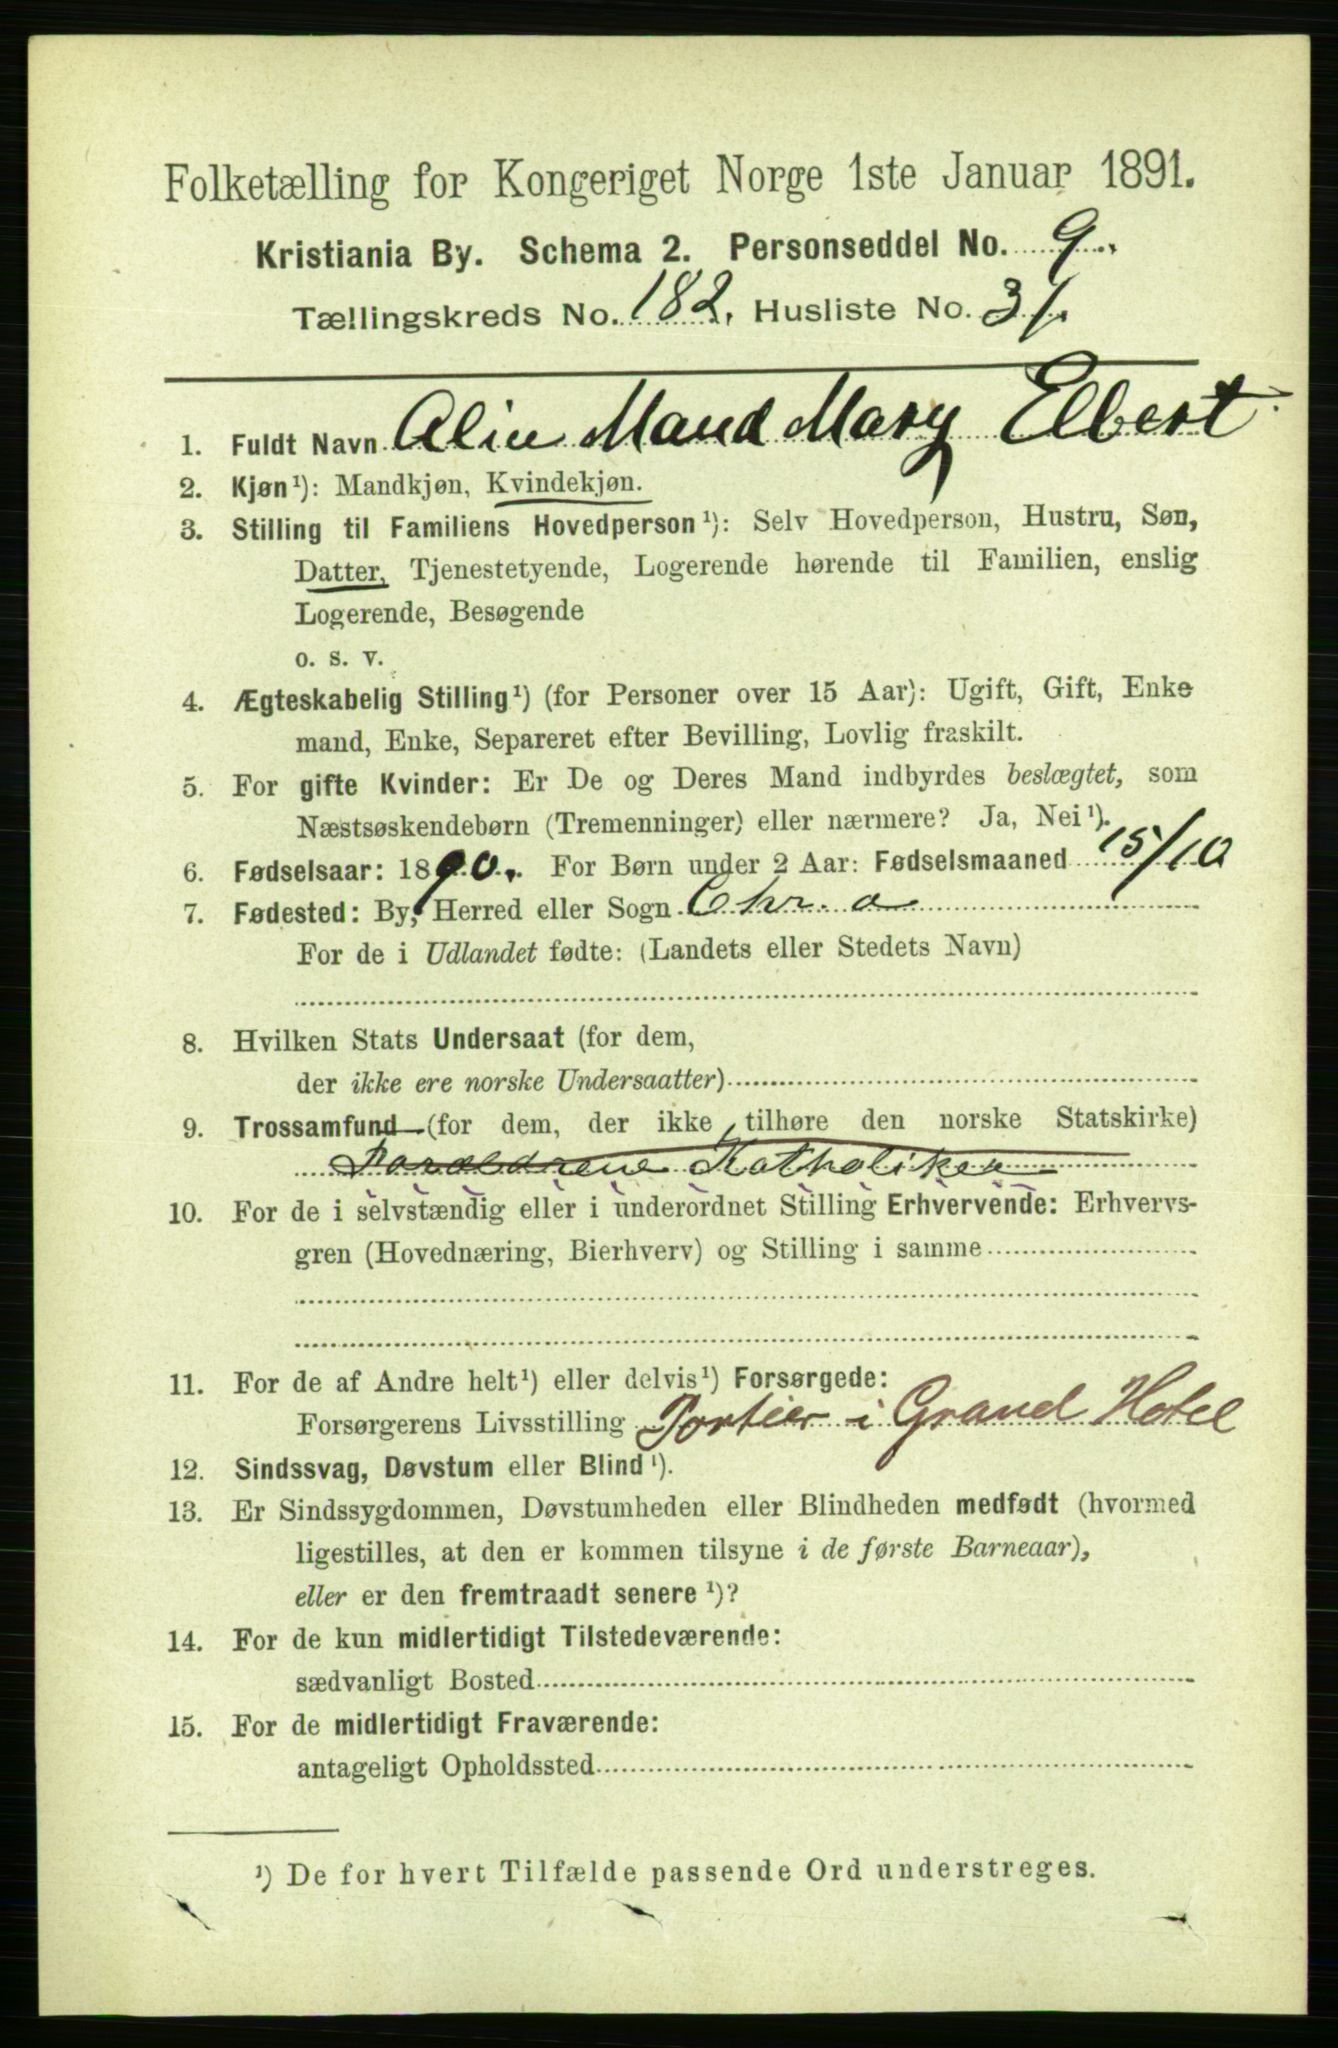 Folketælling for Kongeriget Norge 1ste Januar 1891.
Kristiania By. Schema 2. Personseddel No. 9.
Tællingskreds No. 182. Husliste No. 31.
1. Fuldt Navn Alin Maud Mary Elbert
2. Kjøn¹): Mandkjøn, Kvindekjøn.
3. Stilling til Familiens Hovedperson¹): Selv Hovedperson, Hustru, Søn,
Datter, Tjenestetyende, Logerende hørende til Familien, enslig
Logerende, Besøgende
o. s. v.
4. Ægteskabelig Stilling¹) (for Personer over 15 Aar): Ugift, Gift, Enke
mand, Enke, Separeret efter Bevilling, Lovlig fraskilt.
5. For gifte Kvinder: Er De og Deres Mand indbyrdes beslægtet, som
Næstsøskendebørn (Tremenninger) eller nærmere? Ja, Nei¹).
6. Fødselsaar: 1890. For Børn under 2 Aar: Fødselsmaaned 15/10
7. Fødested: By, Herred eller Sogn Chr. a
For de i Udlandet fødte: (Landets eller Stedets Navn)
8. Hvilken Stats Undersaat (for dem,
der ikke ere norske Undersaatter)
9. Trossamfund (for dem, der ikke tilhøre den norske Statskirke)
Foræeldrene Katholiker
10. For de i selvstændig eller i underordnet Stilling Erhvervende: Erhvervs-
gren (Hovednæring, Bierhverv) og Stilling i samme
11. For de af Andre helt¹) eller delvis¹) Forsørgede:
Forsørgerens Livsstilling Portier i Grand Hotel
12. Sindssvag, Døvstum eller Blind¹).
13. Er Sindssygdommen, Døvstumheden eller Blindheden medfødt (hvormed
ligestilles, at den er kommen tilsyne i de første Barneaar),
eller er den fremtraadt senere¹)?
14. For de kun midlertidigt Tilstedeværende:
sædvanligt Bosted
15. For de midlertidigt Fraværende:
antageligt Opholdssted
¹) De for hvert Tilfælde passende Ord understreges.